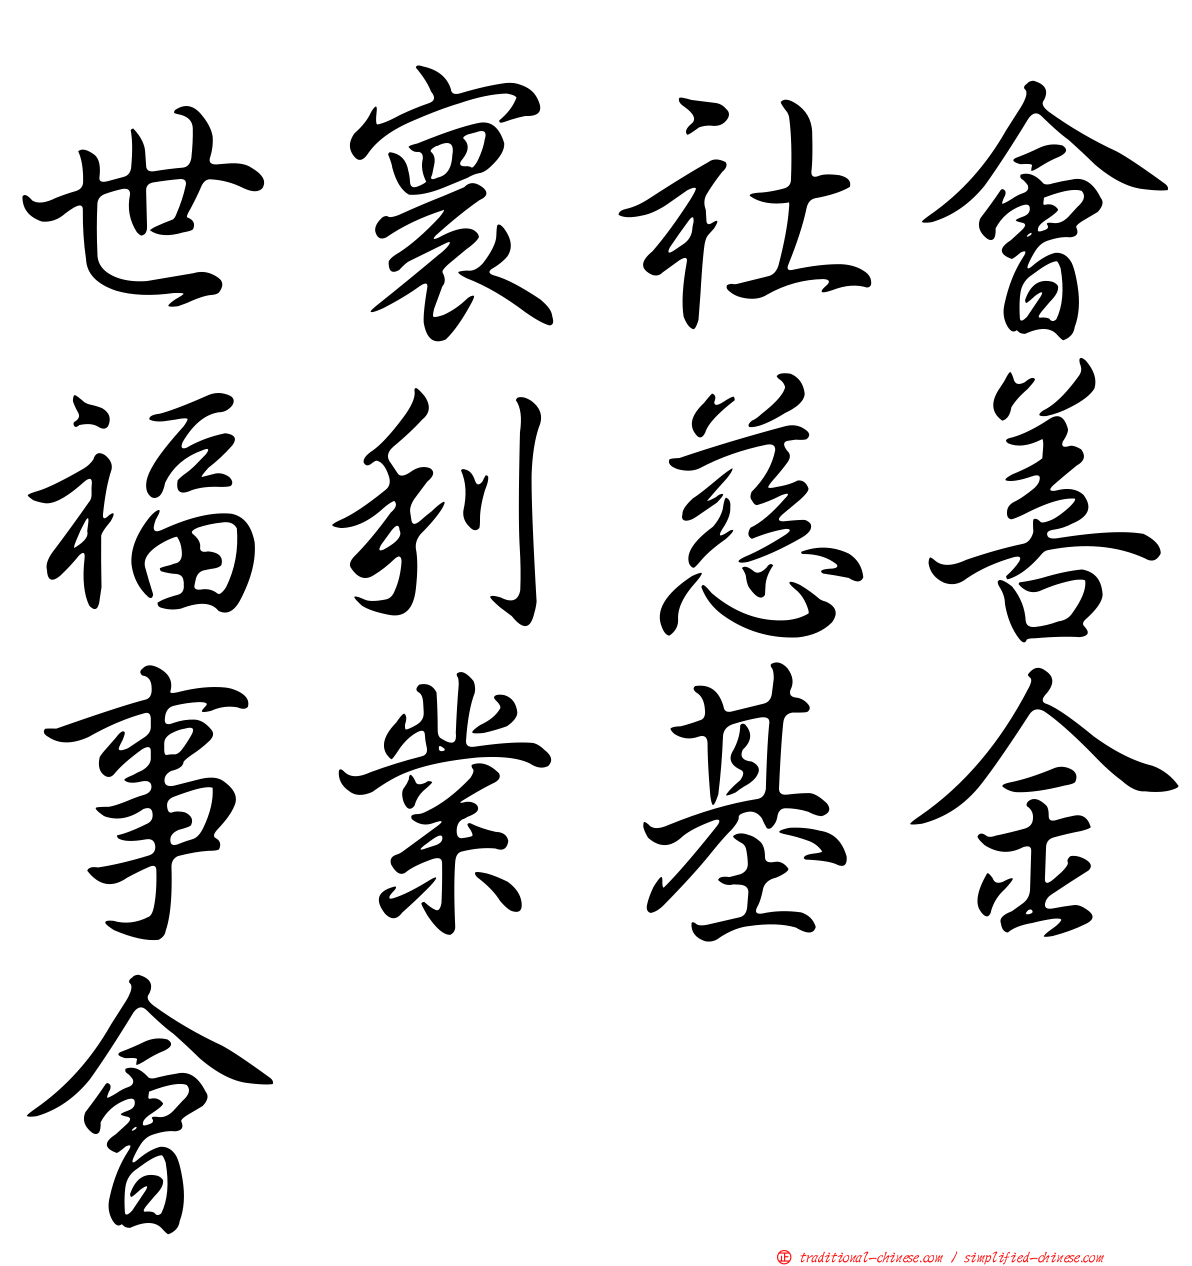 世寰社會
福利慈善
事業基金
會
正 traditional-chinese.com / simplified-chinese.com